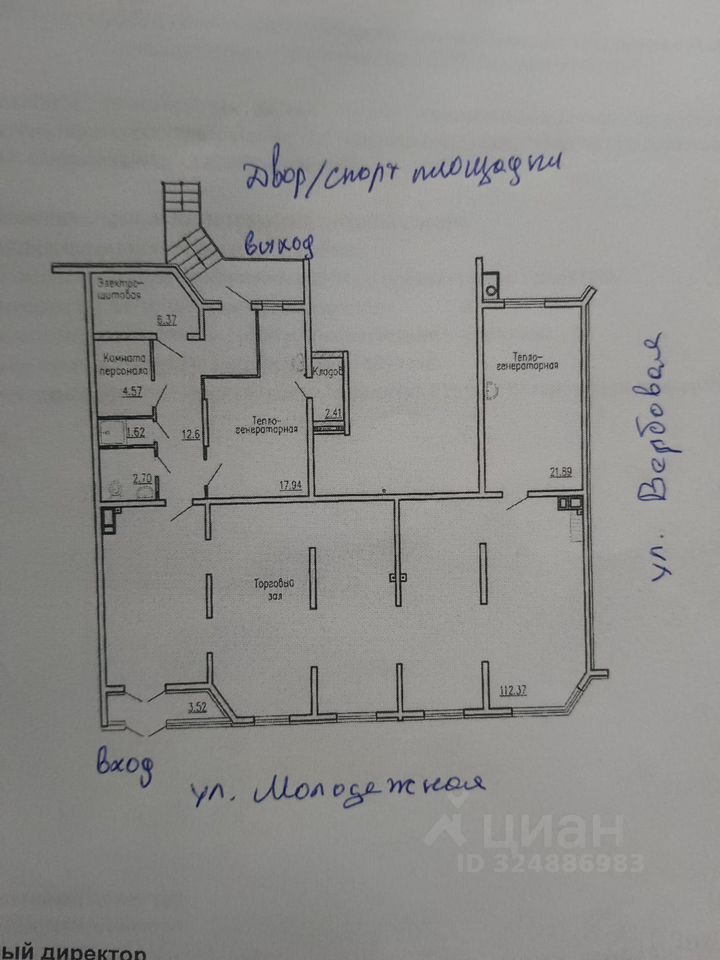 Двор/спорт площадки
выход
Электро-
щитовая
6.37
Комната
персонала
4.57
1.62
12.6
2.70
Тепло-
генераторная
17.94
Кладов
2.41
Тепло-
генераторная
21.89
ул. Вербовая
Торговый
зал
112.37
3.52
вход
ул. Молодежная
циан
ID 324886983
ый директор